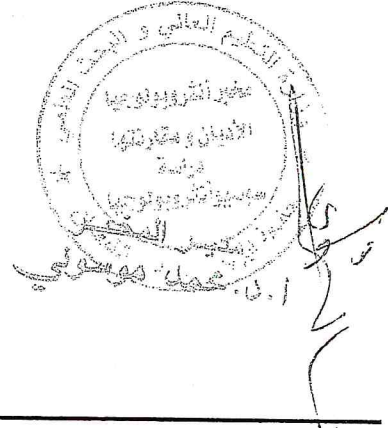 وزارة التعليم العالي و البحث العلمي
مخبر أنثروبولوجيا
الأديان و مقارنتها
دراسة
سوسيوأنثروبولوجية
مدير المخبر
أ.د. محمد موسوني